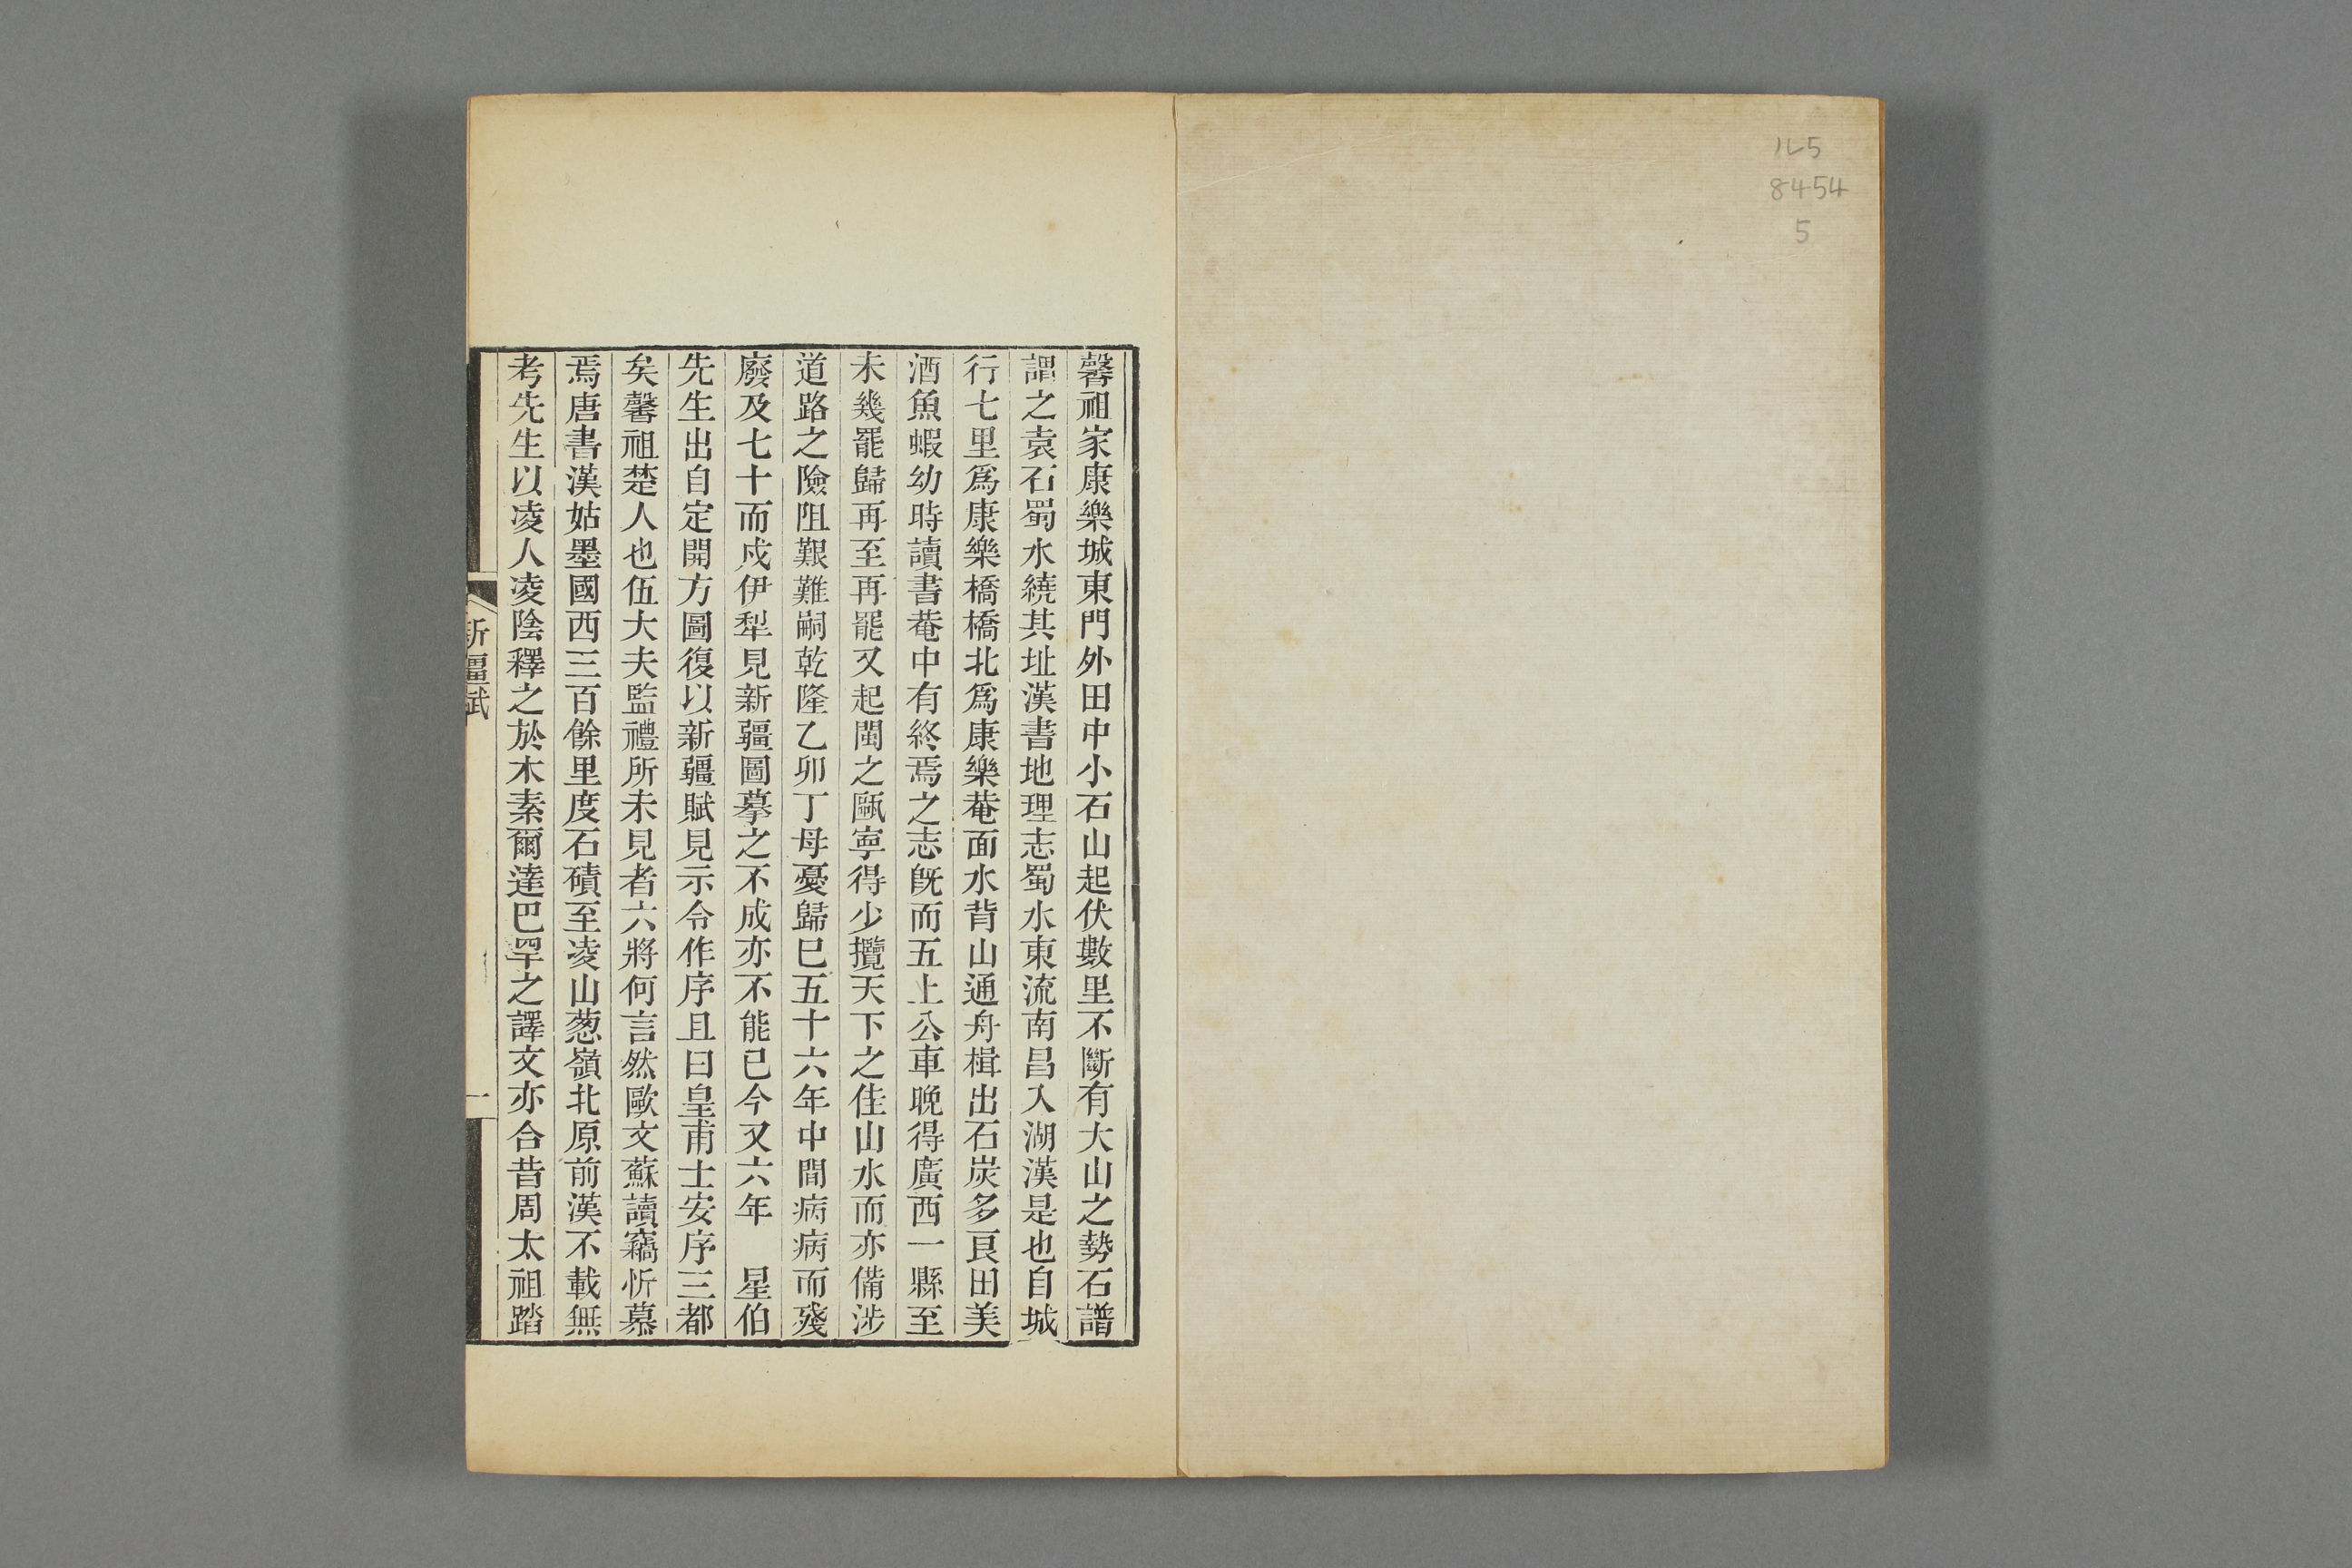 1L5
8454
5
馨祖家康樂城東門外田中小石山起伏數里不斷有大山之勢石譜
謂之袁石蜀水繞其址漢書地理志蜀水東流南昌入湖漢是也自城
行七里爲康樂橋橋北爲康樂菴面水背山通舟楫出石炭多良田美
酒魚蝦幼時讀書菴中有終焉之志旣而五上公車晚得廣西一縣至
未幾罷歸再至再罷又起閩之甌寧得少攬天下之佳山水而亦備涉
道路之險阻艱難嗣乾隆乙卯丁母憂歸巳五十六年中間病病而殘
廢及七十而戍伊犁見新疆圖摹之不成亦不能已今又六年　星伯
先生出自定開方圖復以新疆賦見示令作序且曰皇甫士安序三都
矣馨祖楚人也伍大夫監禮所未見者六將何言然歐文蘇讀竊忻慕
焉唐書漢姑墨國西三百餘里度石磧至凌山葱嶺北原前漢不載無
考先生以凌人凌陰釋之於木素爾達巴罕之譯文亦合昔周太祖踏
新疆賦
一